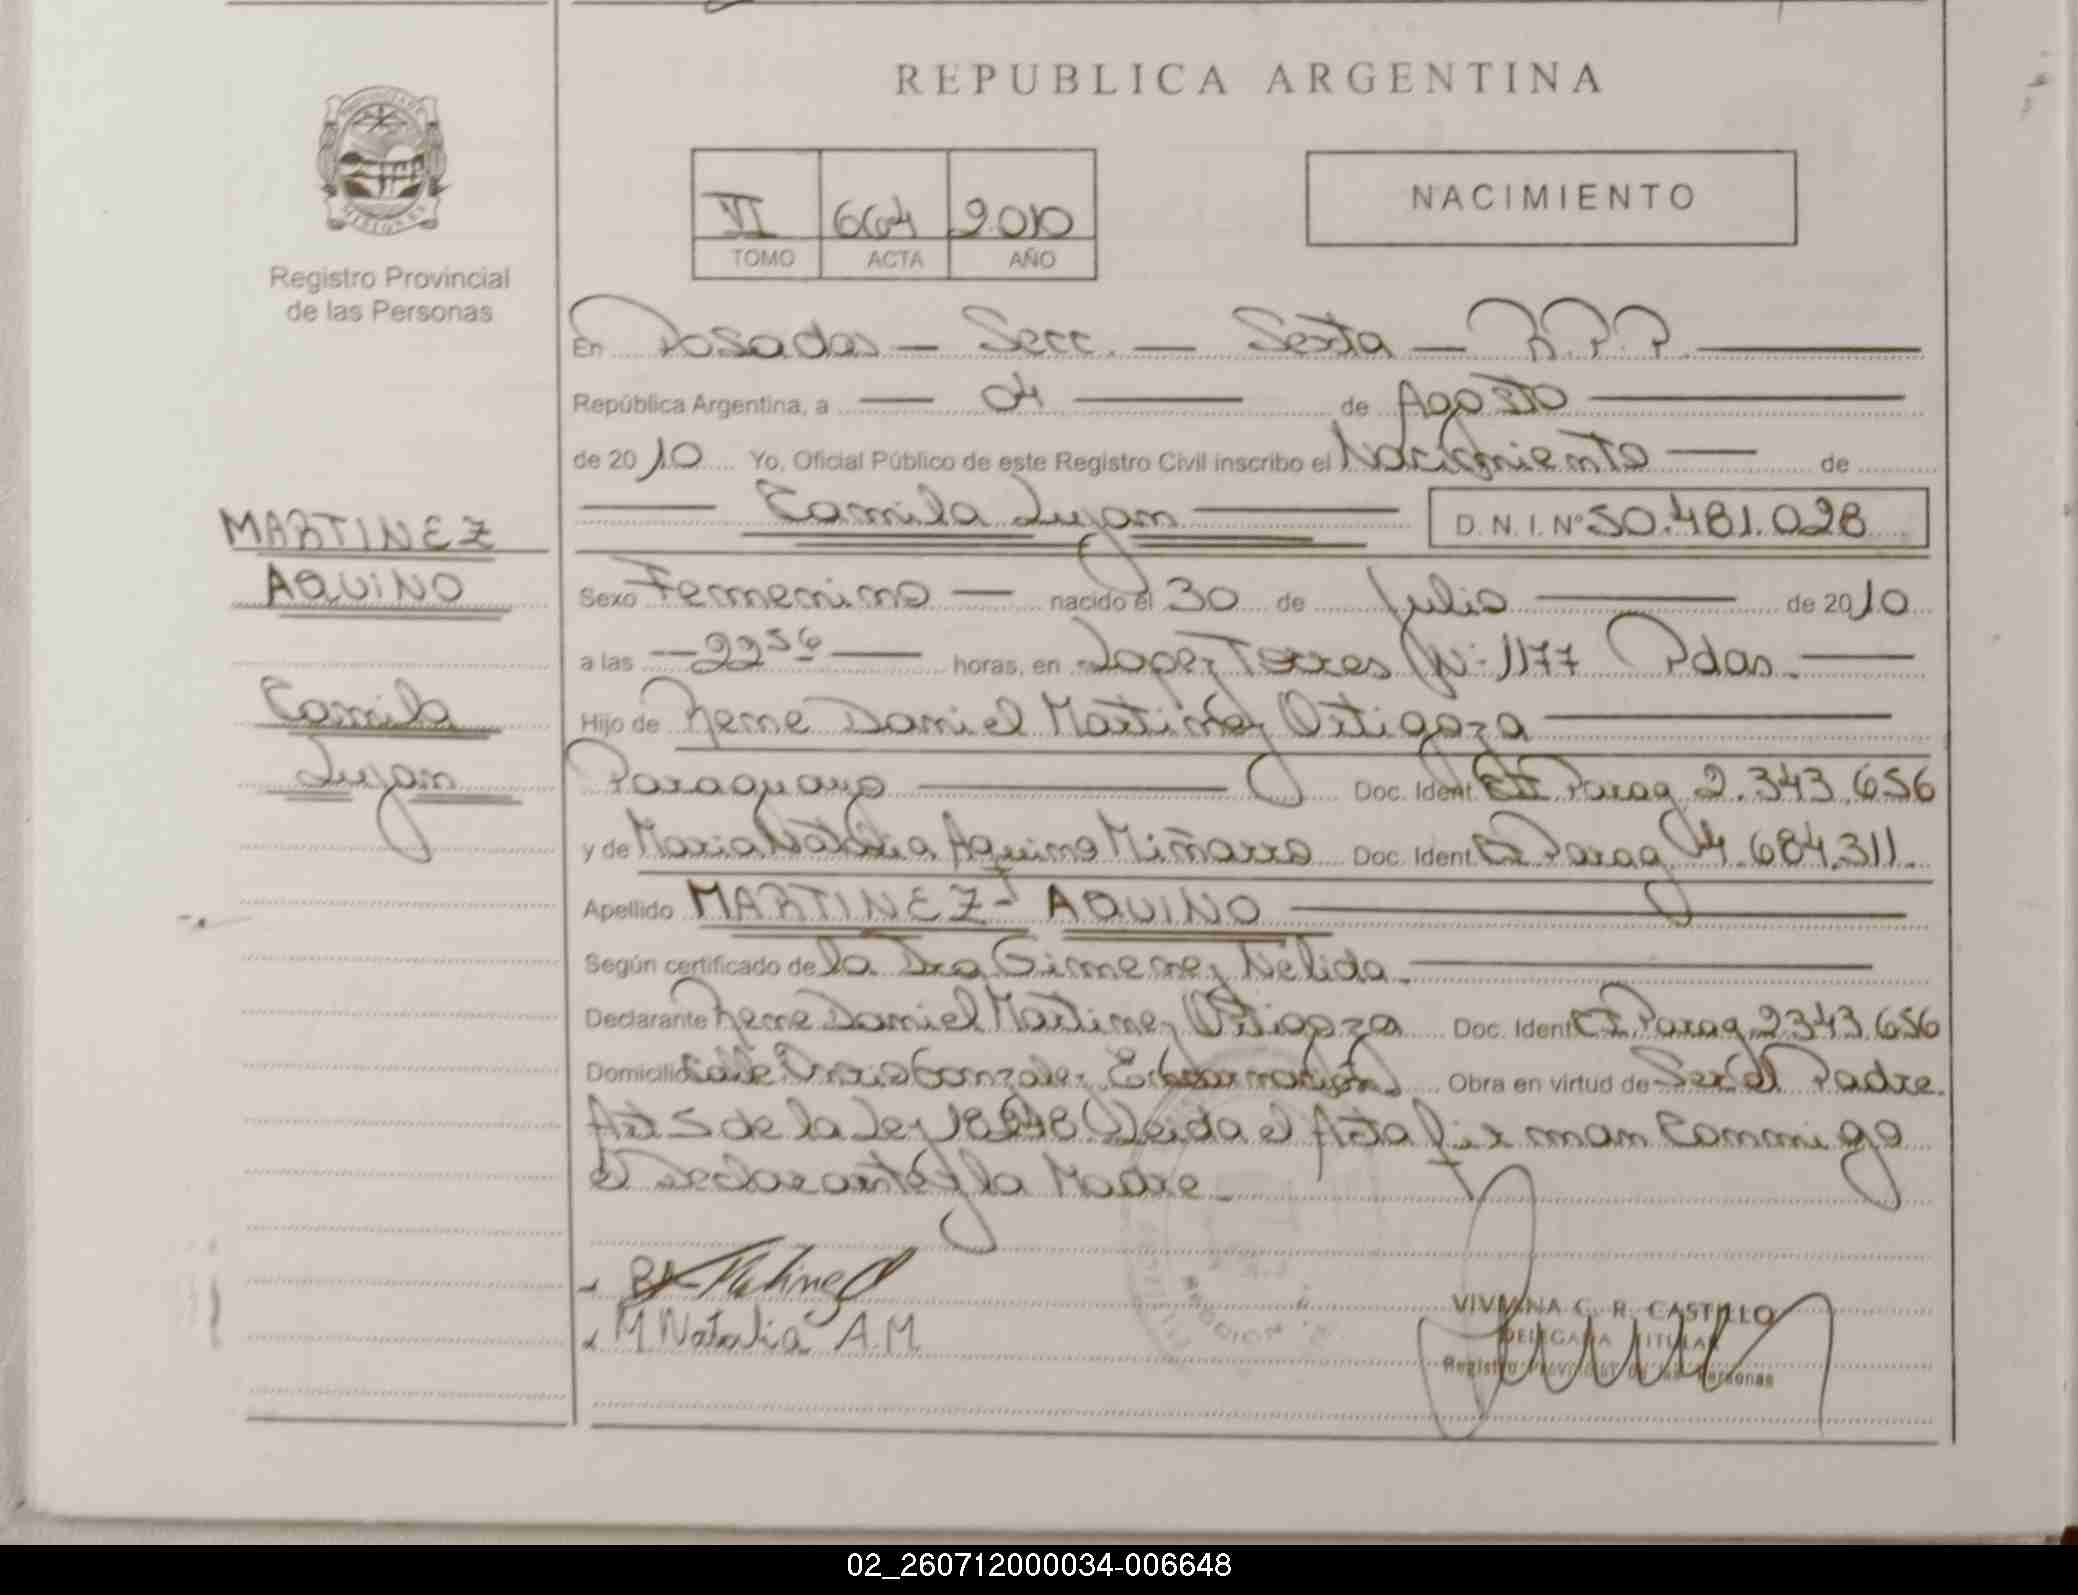 REPUBLICA ARGENTINA
Registro Provincial
de las Personas
VI 664 2010
TOMO ACTA AÑO
NACIMIENTO
En Posadas — Secc. — Sexta — R.P.P.
República Argentina, a — 04 — de Agosto
de 2010 Yo, Oficial Público de este Registro Civil inscribo el Nacimiento — de
— Camila Lujan — D.N.I. Nº 50.481.028
MARTINEZ
AQUINO
Camila
Lujan
Sexo Femenino — nacido el 30 de Julio — de 2010
a las — 22 56 — horas, en Lopez Torres Nº 1177 Pdas.
Hijo de Rene Daniel Martinez Ortigoza
Paraguayo — Doc. Ident. CI Parag 2.343.656
y de Maria Natalia Aquino Miñarro Doc. Ident. CI Parag 4.684.311.
Apellido MARTINEZ - AQUINO
Según certificado de la Dra Gimenez Nelida.
Declarante Rene Daniel Martinez Ortigoza Doc. Ident. CI Parag 2343.656
Domicilio Calle Gonzalez Encarnación Obra en virtud de Ser el Padre.
Art 5 de la Ley 18248 Leida el Acta firman conmigo
el Declarante y la Madre.
M Natalia A.M
VIVIANA C. R. CASTILLO
DELEGADA TITULAR
Registro Provincial de las Personas
02_260712000034-006648